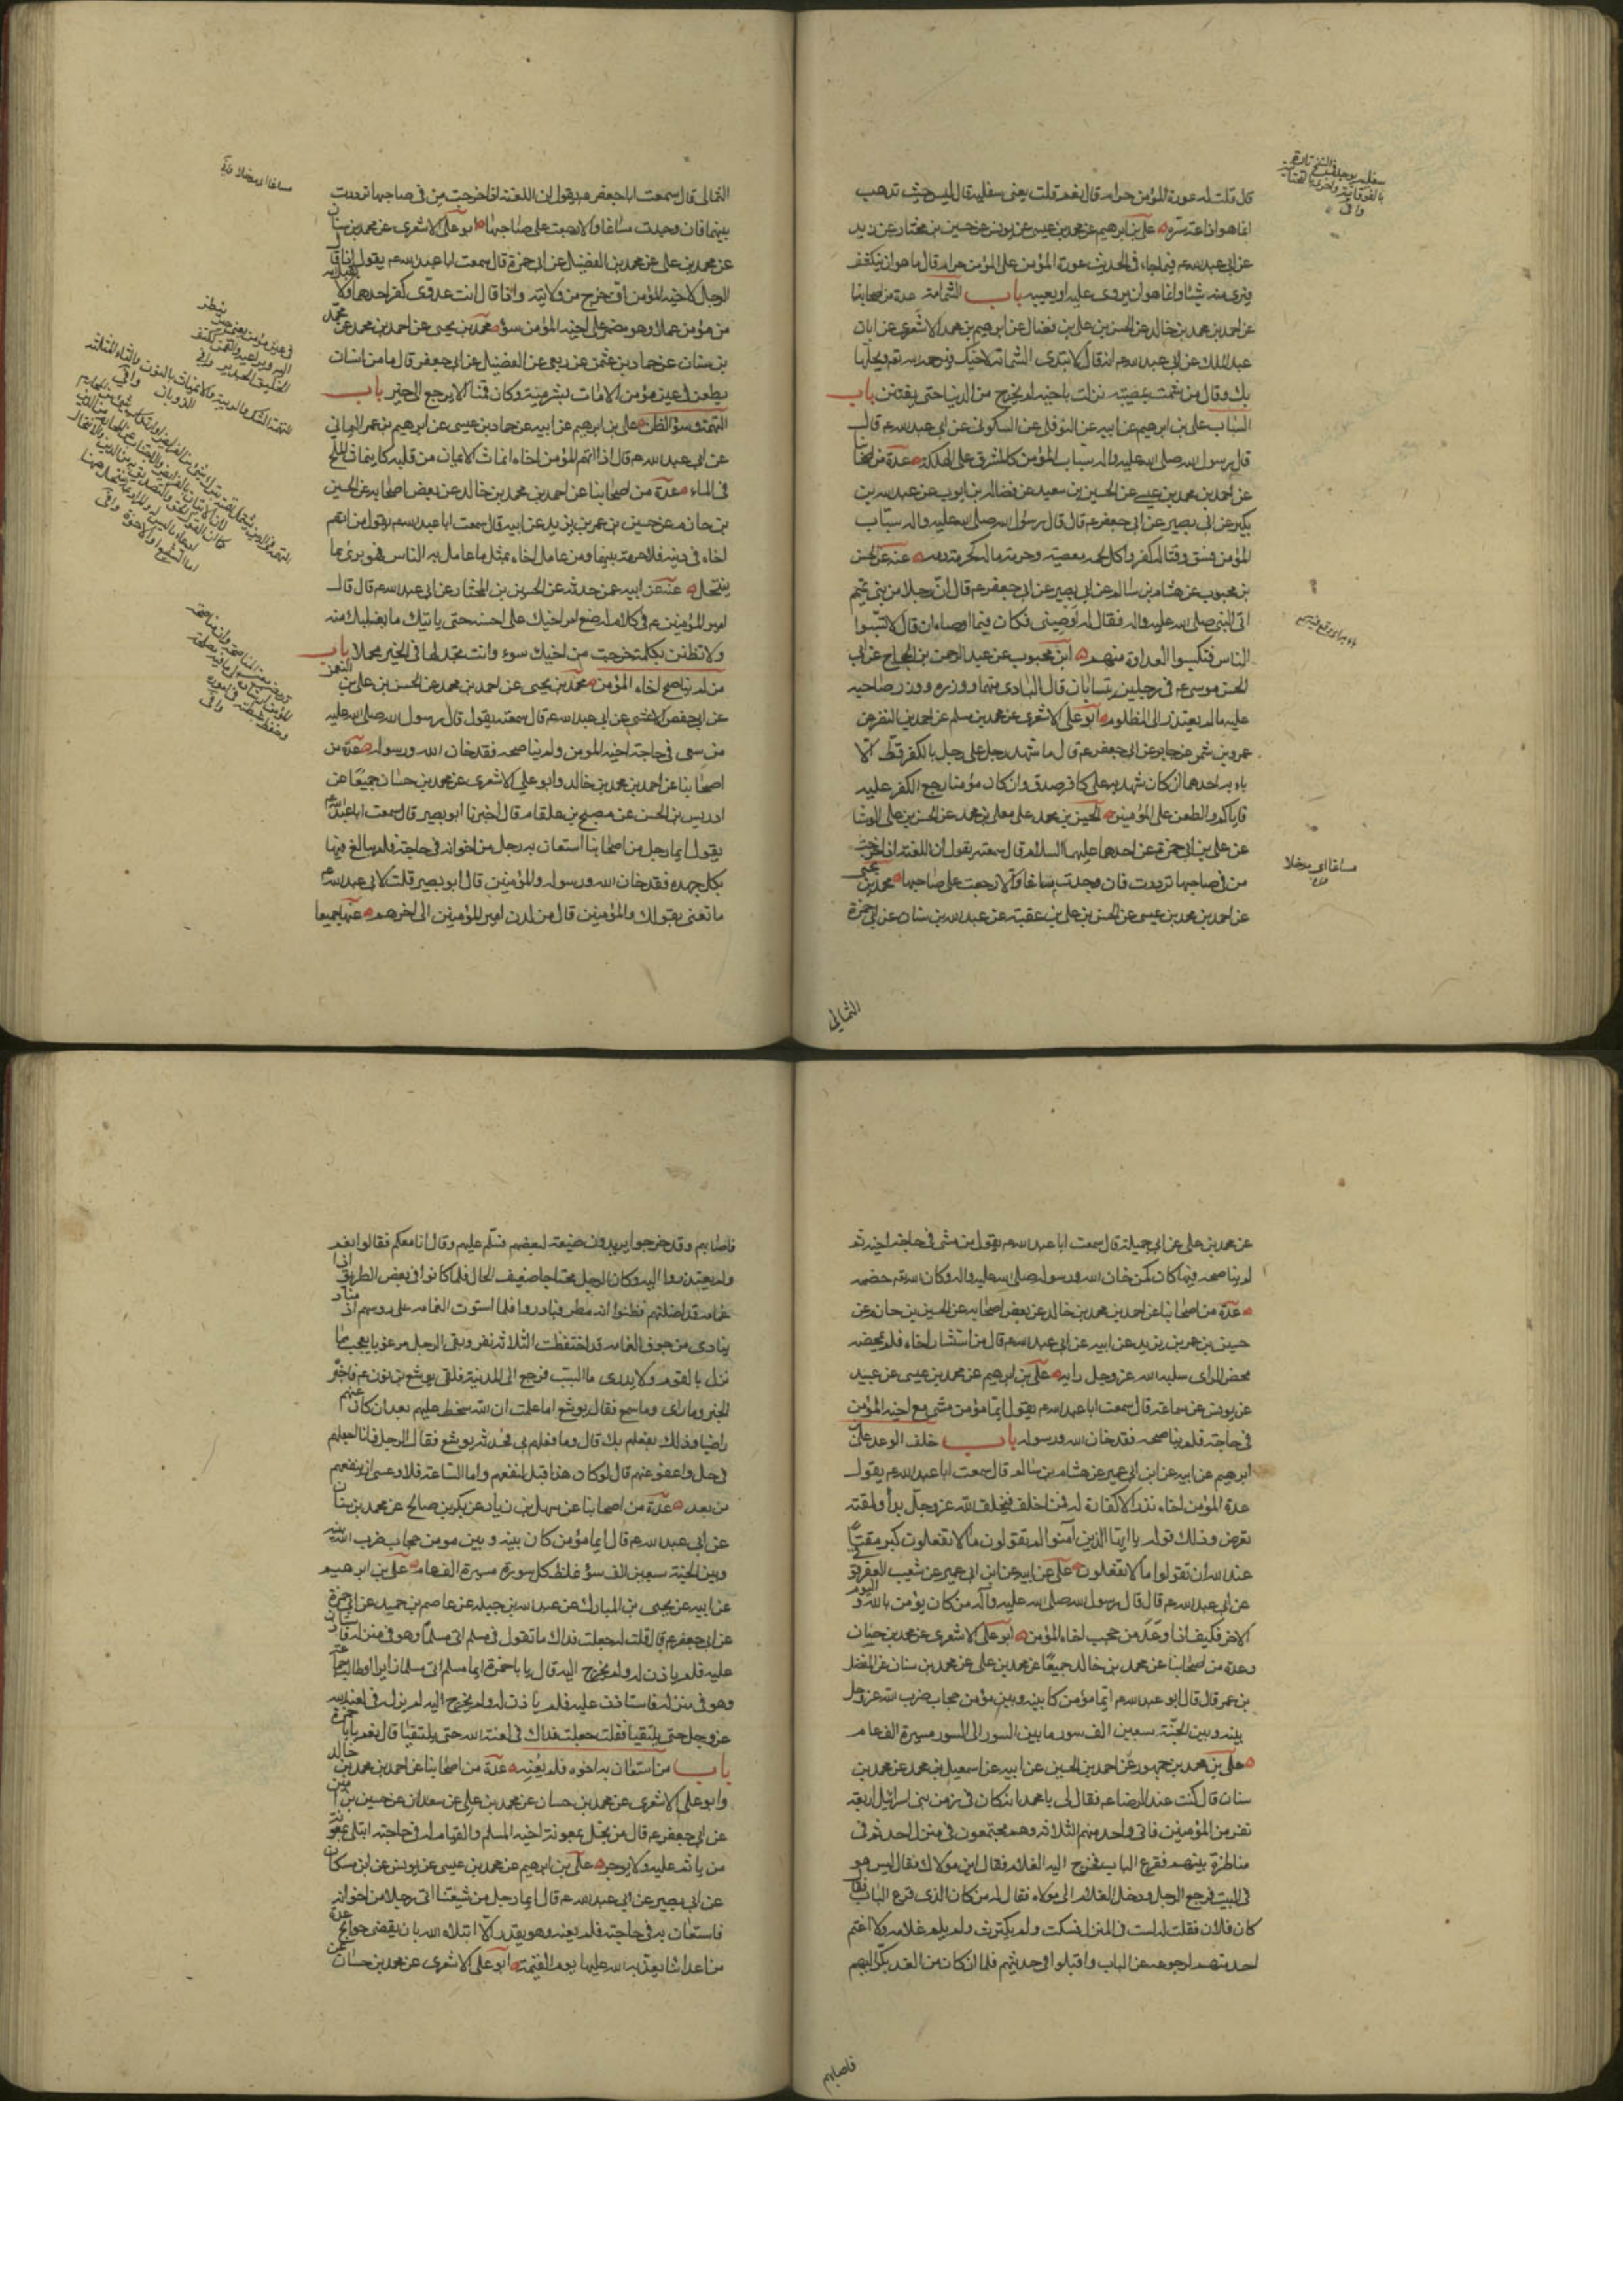 قال قلت له عورة المؤمن حرام قال نعم قلت يعنى سفليه قال ليس حيث تذهب
انما هو اذاعة سرّه علىّ بن ابرهيم عن محمد بن عيسى عن يونس عن حسين بن مختار عن زيد
عن ابى عبد الله ع فيما جاء فى الحديث عورة المؤمن على المؤمن حرام قال ما هو ان ينكشف
وترى منه شيئا انما هو ان تروى عليه او تعيبه باب الشماتة عدة من اصحابنا
عن احمد بن محمد بن خالد عن الحسن بن على بن فضال عن ابرهيم بن محمد الاشعرى عن ابان
عبد الملك عن ابى عبد الله ع انه قال لا تبدى الشماتة لاخيك فيرحمه الله ويحلّها
بك وقال من شمت بمصيبة نزلت باخيه لم يخرج من الدنيا حتى يفتتن باب
السّباب على بن ابرهيم عن ابيه عن النوفلى عن السكونى عن ابى عبد الله ع قال
قال رسول الله صلى الله عليه واله سباب المؤمن كالمشرف على الهلكة عدة من اصحابنا
عن احمد بن محمد بن عيسى عن الحسين بن سعيد عن فضالة بن ايوب عن عبد الله بن
بكير عن ابى بصير عن ابى جعفر ع قال قال رسول الله صلى الله عليه واله سباب
المؤمن فسق وقتاله كفر واكل لحمه معصية وحرمة ماله كحرمة دمه عنه عن الحسن
بن محبوب عن هشام بن سالم عن ابى بصير عن ابى جعفر ع قال انّ رجلا من بنى تميم
اتى النبى صلى الله عليه واله فقال له اوصينى فكان فيما اوصاه ان قال لا تسبّوا
الناس فتكسبوا العداوة منهم ابن محبوب عن عبد الرحمن بن الحجاج عن ابى
الحسن موسى ع فى رجلين يتسابان قال البادى منهما ووزره ووزر صاحبه
عليه ما لم يعتذر الى المظلوم ابو على الاشعرى عن محمد بن سلم عن احمد بن النضر عن
عمرو بن شمر عن جابر عن ابى جعفر ع قال ما شهد رجل على رجل بالكفر قطّ الّا
باء به احدهما ان كان شهد به على كافر صدق وان كان مؤمنا رجع الكفر عليه
فاياكم والطعن على المؤمنين الحسين بن محمد على معلى بن محمد عن الحسن بن على الوشا
عن على بن ابى حمزة عن احدهما عليهما السلام قال سمعته يقول ان اللعنة اذا خرجت
من فى صاحبها ترددت فان وجدت مساغا والا رجعت على صاحبها محمد بن يحيى
عن احمد بن محمد بن عيسى عن الحسن بن على بن عقبة عن عبد الله بن سنان عن ابى حمزة
الثمالى
مساغا اى مدخلا
الثمالى قال سمعت ابا جعفر ع يقول ان اللعنة اذا خرجت من فى صاحبها ترددت
بينهما فان وجدت مساغا والا رجعت على صاحبها ابو على الاشعرى عن محمد بن سنان
عن محمد بن على عن محمد بن الفضيل عن ابى حمزة قال سمعت ابا عبد الله ع يقول اذا قال
الرجل لاخيه المؤمن اف خرج من ولايته واذا قال انت عدوّى كفر احدهما ولا يقبل الله
من مؤمن عملا وهو مضمر على اخيه المؤمن سوء محمد بن يحيى عن احمد بن محمد عن محمد
بن سنان عن حماد بن عثمن عن ربعى عن الفضيل عن ابى جعفر قال ما من انسان
يطعن فى عين مؤمن الا مات بشر ميتة وكان قمنا الا يرجع الى خير باب
التهمة وسوء الظن على بن ابرهيم عن ابيه عن حماد بن عيسى عن ابرهيم بن عمر اليمانى
عن ابى عبد الله ع قال اذا اتهم المؤمن اخاه انماث الايمان من قلبه كما ينماث الملح
فى الماء عدة من اصحابنا عن احمد بن محمد بن خالد عن بعض اصحابه عن الحسين
بن حازم عن حسين بن عمر بن يزيد عن ابيه قال سمعت ابا عبد الله ع يقول من اتهم
اخاه فى دينه فلا حرمة بينهما ومن عامل اخاه بمثل ما عامل به الناس فهو برئ مما
ينتحل عنه عن ابيه عمن حدثه عن الحسين بن المختار عن ابى عبد الله ع قال قال
امير المؤمنين ع فى كلام له ضع امر اخيك على احسنه حتى ياتيك ما يغلبك منه
ولا تظنن بكلمة خرجت من اخيك سوء وانت تجد لها فى الخير محملا باب
من لم يناصح اخاه المؤمن محمد بن يحيى عن احمد بن محمد عن الحسن بن على بن النعمن
عن ابى حفص الاعشى عن ابى عبد الله ع قال سمعته يقول قال رسول الله صلى الله عليه
من سعى فى حاجة اخيه المؤمن ولم يناصحه فقد خان الله ورسوله عدة من
اصحابنا عن احمد بن محمد بن خالد وابو على الاشعرى عن محمد بن حسان جميعا عن
ادريس بن الحسن عن مصبح بن هلقام قال اخبرنا ابو بصير قال سمعت ابا عبد الله
يقول ايما رجل من اصحابنا استعان به رجل من اخوانه فى حاجة فلم يبالغ فيها
بكل جهده فقد خان الله ورسوله والمؤمنين قال ابو بصير قلت لابى عبد الله
ما تعنى بقولك والمؤمنين قال من لدن امير المؤمنين الى اخرهم عنهما جميعا
عن محمد بن على عن ابى جميلة قال سمعت ابا عبد الله ع يقول من مشى فى حاجة اخيه ثم
لم يناصحه فيها كان كمن خان الله ورسوله صلى الله عليه واله وكان الله خصمه
عدة من اصحابنا عن احمد بن محمد بن خالد عن بعض اصحابه عن الحسين بن حازم عن
حسين بن عمر بن يزيد عن ابيه عن ابى عبد الله ع قال من استشار اخاه فلم يمحضه
محض الراى سلبه الله عز وجل رايه على بن ابرهيم عن محمد بن عيسى عن عبيد
عن يونس عن سماعة قال سمعت ابا عبد الله ع يقول ايما مؤمن مشى مع اخيه المؤمن
فى حاجة فلم يناصحه فقد خان الله ورسوله باب خلف الوعد على بن
ابرهيم عن ابيه عن ابن ابى عمير عن هشام بن سالم قال سمعت ابا عبد الله ع يقول
عدة المؤمن اخاه نذر لا كفارة له فمن اخلف فبخلف الله عز وجل بدأ ولمقته
تعرض وذلك قوله يا ايها الذين آمنوا لم تقولون ما لا تفعلون كبر مقتا
عند الله ان تقولوا ما لا تفعلون على عن ابيه عن ابن ابى عمير عن شعيب العقرقوفى
عن ابى عبد الله ع قال قال رسول الله صلى الله عليه وآله من كان يؤمن بالله واليوم
الاخر فليف اذا وعد من حجب اخاه المؤمن ابو على الاشعرى عن محمد بن حسان
وعدة من اصحابنا عن محمد بن خالد جميعا عن محمد بن على عن محمد بن سنان عن المفضل
بن عمر قال قال ابو عبد الله ع ايما مؤمن كا بينه وبين مؤمن حجاب ضرب الله عز وجل
بينه وبين الجنّة سبعين الف سور ما بين السور الى السور مسيرة الف عام
على بن محمد بن جمهور عن احمد بن الحسين عن ابيه عن اسمعيل بن محمد عن محمد بن
سنان قال كنت عند الرضا ع فقال لى يا محمد انه كان فى زمن بنى اسرائيل اربعة
نفر من المؤمنين فاتى واحد منهم الثلاثة وهم مجتمعون فى منزل احدهم فى
مناظرة بينهم فقرع الباب فخرج اليه الغلام فقال اين مولاك فقال ليس هو
فى البيت فرجع الرجل ودخل الغلام الى مولاه فقال له من كان الذى قرع الباب فقال
كان فلان فقلت له لست فى المنزل فسكت ولم يكترث ولم يلم غلامه ولا اغتم
احد منهم لرجوعه عن الباب واقبلوا فى حديثهم فلما ان كان من الغد بكّر اليهم
فاصابهم
فاصابهم وقد خرجوا يريدون ضيعة لبعضهم فسلّم عليهم وقال انا معكم فقالوا نعم
ولم يعتذروا اليه وكان الرجل محتاجا ضعيف الحال فلما كانوا فى بعض الطريق اذا
غمامة قد اظلتهم فظنوا انه مطر فبادروا فلما استوت الغمامة على رؤسهم اذ مناد
ينادى من جوف الغمامة
نزل بالقوم ولا يدرى ما السبب فرجع الى المدينة فلقى يوشع بن نون ع فاخبره
الخبر وما راى وما سمع فقال يوشع اما علمت ان الله سخط عليهم بعد ان كان عنهم
راضيا وذلك بفعلهم بك قال وما فعلهم بى فحدثه يوشع فقال الرجل فانا اجعلهم
فى حل واعفو عنهم قال لو كان هذا قبل لنفعهم واما الساعة فلا وعسى ان ينفعهم
من بعد عدة من اصحابنا عن سهل بن زياد عن بكر بن صالح عن محمد بن سنان
عن ابى عبد الله ع قال ايما مؤمن كان بينه وبين مومن حجاب ضرب الله بينه
وبين الجنة سبعين الف سور غلظ كل سورة مسيرة الف عام على بن ابرهيم
عن ابيه عن يحيى بن المبارك عن عبد الله بن جبلة عن عاصم بن حميد عن ابى حمزة
عن ابى جعفر ع قال قلت له جعلت فداك ما تقول فى مسلم اتى مسلما وهو فى منزله فاستاذن
عليه فلم ياذن له ولم يخرج اليه قال يا با حمزة ايما مسلم اتى مسلما زايرا او طالب حاجة
وهو فى منزله فاستاذن عليه فلم ياذن له ولم يخرج اليه لم يزل فى لعنة الله
عز وجل حتى يلتقيا فقلت جعلت فداك فى لعنة الله حتى يلتقيا قال نعم يا با حمزة
باب من استعان به اخوه فلم يعنه عدة من اصحابنا عن احمد بن محمد بن خالد
وابو على الاشعرى عن محمد بن حسان عن محمد بن على عن سعدان عن حسين بن امين
عن ابى جعفر ع قال من بخل بمعونة اخيه المسلم والقيام له فى حاجته ابتلى بمعونة
من ياثم عليه ولا يوجر على بن ابرهيم عن محمد بن عيسى عن يونس عن ابن مسكان
عن ابى بصير عن ابى عبد الله ع قال ايما رجل من شيعتنا اتى رجلا من اخوانه
فاستعان به فى حاجته فلم يعنه وهو يقدر الّا ابتلاه الله بان يقضى حوائج عدة
من اعدائنا يعذبه الله عليها يوم القيمة ابو على الاشعرى عن محمد بن حسان عن